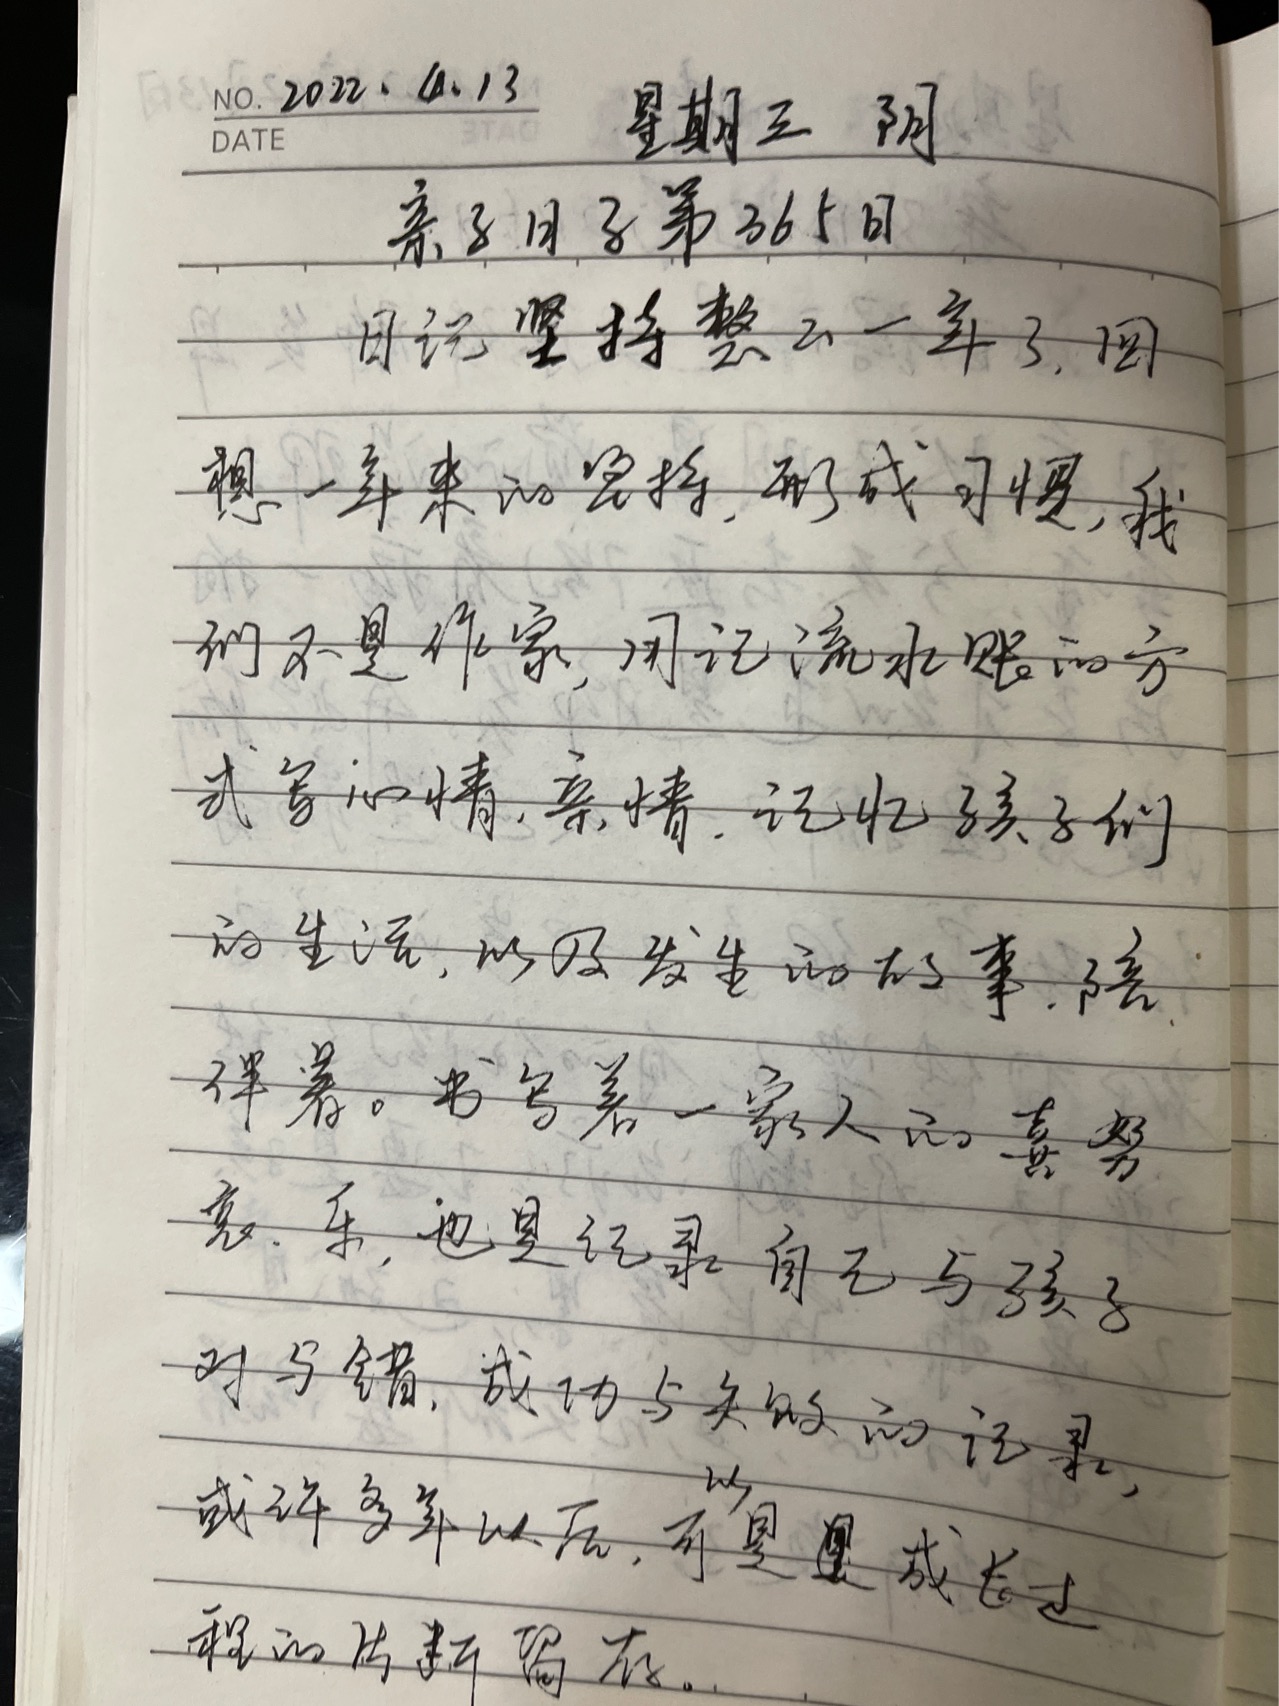 NO. 2022.4.13
DATE
星期三 阴
亲子日子第365日
日记坚持整整一年了,回
想一年来的坚持,形成习惯,我
们不是作家,用记流水账的方
式写心情,亲情,记忆孩子们
的生活,以及发生的故事,陪
伴着。书写着一家人的喜努
哀、乐,也是记录自己与孩子
对与错,成功与失败的记录,
或许多年以后,可以是是成长过
程的片断留存。